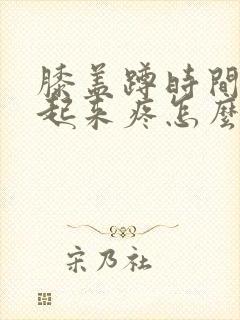 膝盖蹲時間
起来疼怎麼
宋乃社